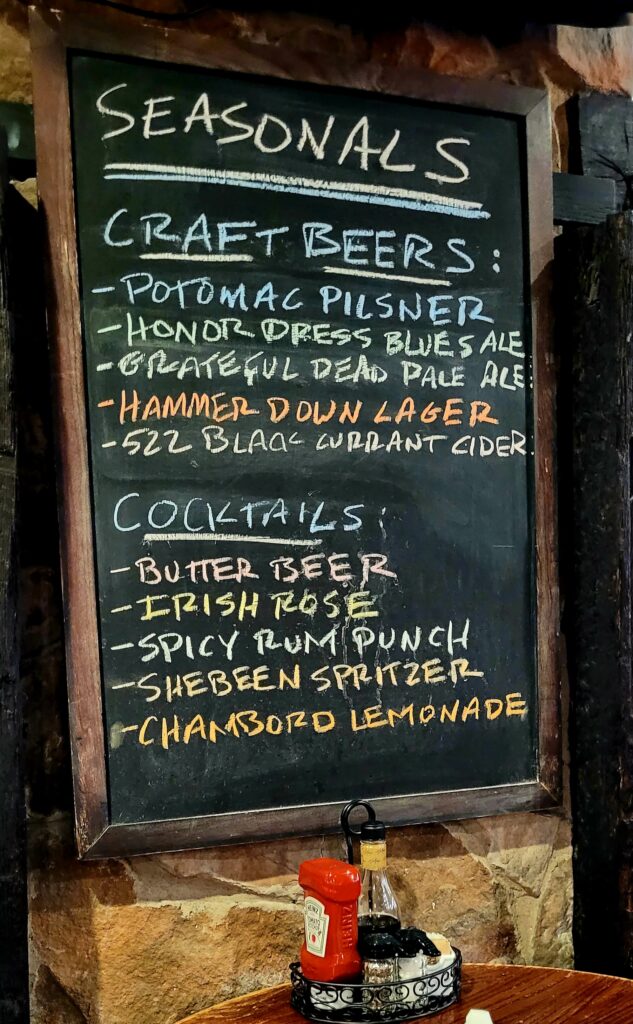 SEASONALS
CRAFT BEERS:
-POTOMAC PILSNER
-HONOR DRESS BLUES ALE
-GRATEFUL DEAD PALE ALE.
-HAMMER DOWN LAGER
-522 BLACK CURRANT CIDER.
COCKTAILS:
-BUTTER BEER
-IRISH ROSE
-SPICY RUM PUNCH
-SHEBEEN SPRITZER
-CHAMBORD LEMONADE
HEINZ
TOMATO
KETCHUP
HEINZ